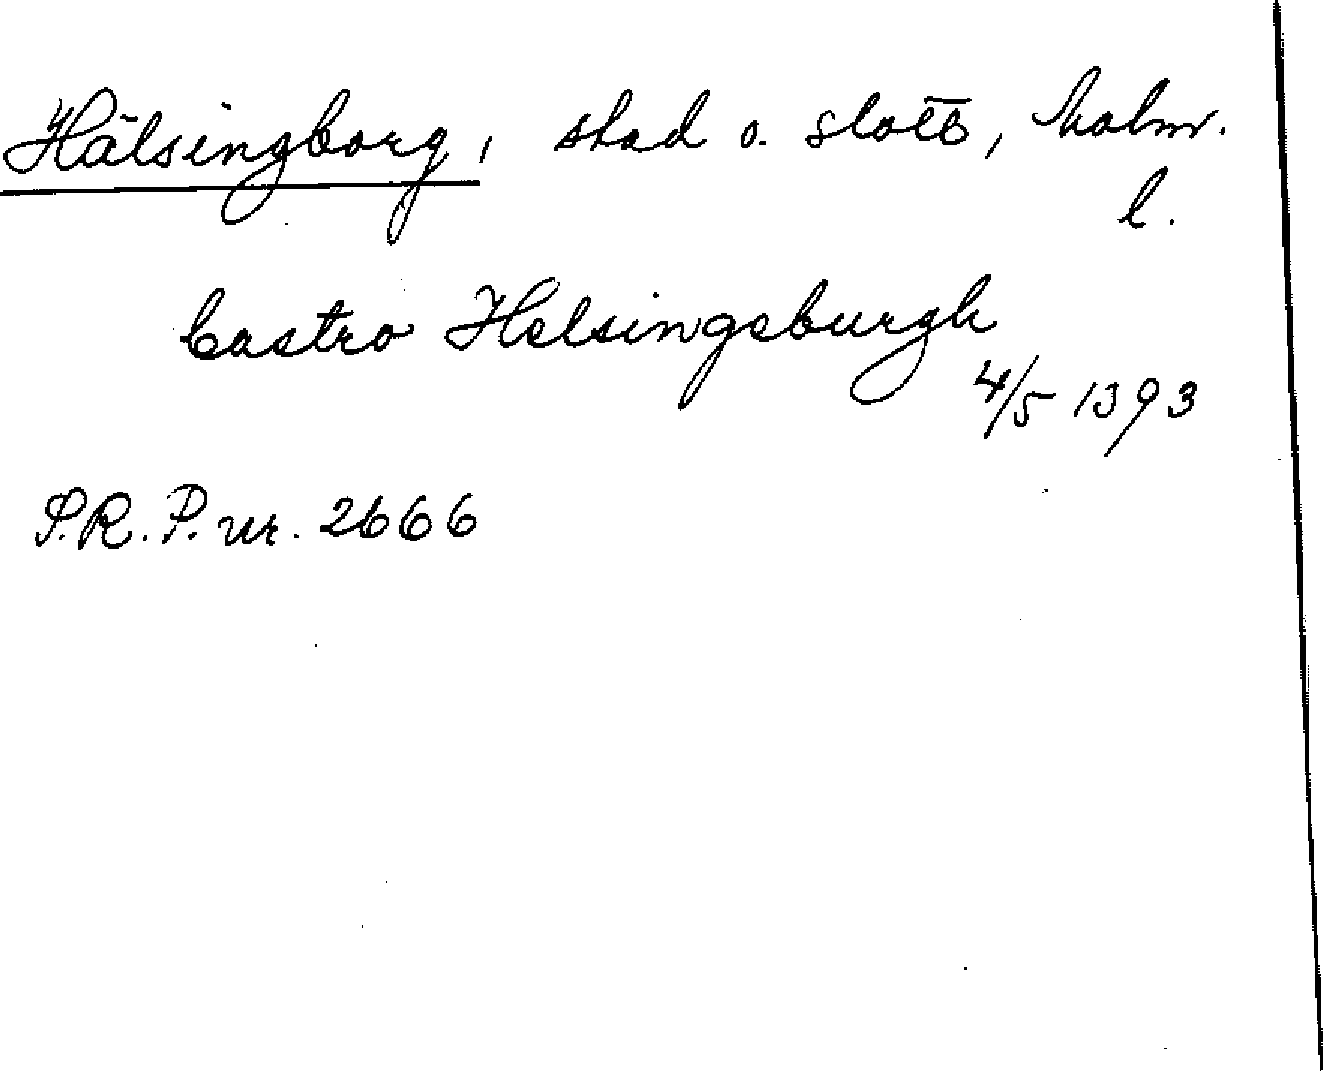 Hälsingborg, stad o. slott, Malm.
l.
Castro Helsingeburgh
4/5 1393
S.R.P. nr. 2666